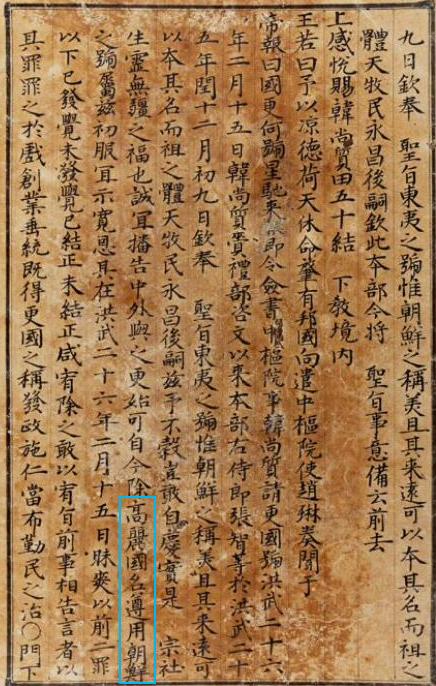 九日欽奉 聖旨東夷之號惟朝鮮之稱美且其來遠可以本其名而祖之
體天牧民永昌後嗣欽此本部今將 聖旨事意備云前去
上感悅賜韓尚質田五十結 下敎境內
王若曰予以凉德荷天休命肇有邦國向遣中樞院使趙琳奏聞于
帝報曰國更何號星馳來報即令僉書中樞院事韓尚質請更國號洪武二十六
年二月十五日韓尚質賫禮部咨文以來本部右侍郎張智等於洪武二十
五年閏十二月初九日欽奉 聖旨東夷之號惟朝鮮之稱美且其來遠可
以本其名而祖之體天牧民永昌後嗣茲予不穀豈敢自慶實是 宗社
生靈無疆之福也誠宜播告中外與之更始可自今除高麗國名遵用朝鮮
之號屬茲初服宜示寬恩其在洪武二十六年二月十五日昧爽以前二罪
以下已發覺未發覺已結正未結正咸宥除之敢以宥旨前事相告言者以
其罪罪之於戲創業垂統既得更國之稱發政施仁當布勤民之治〇門下